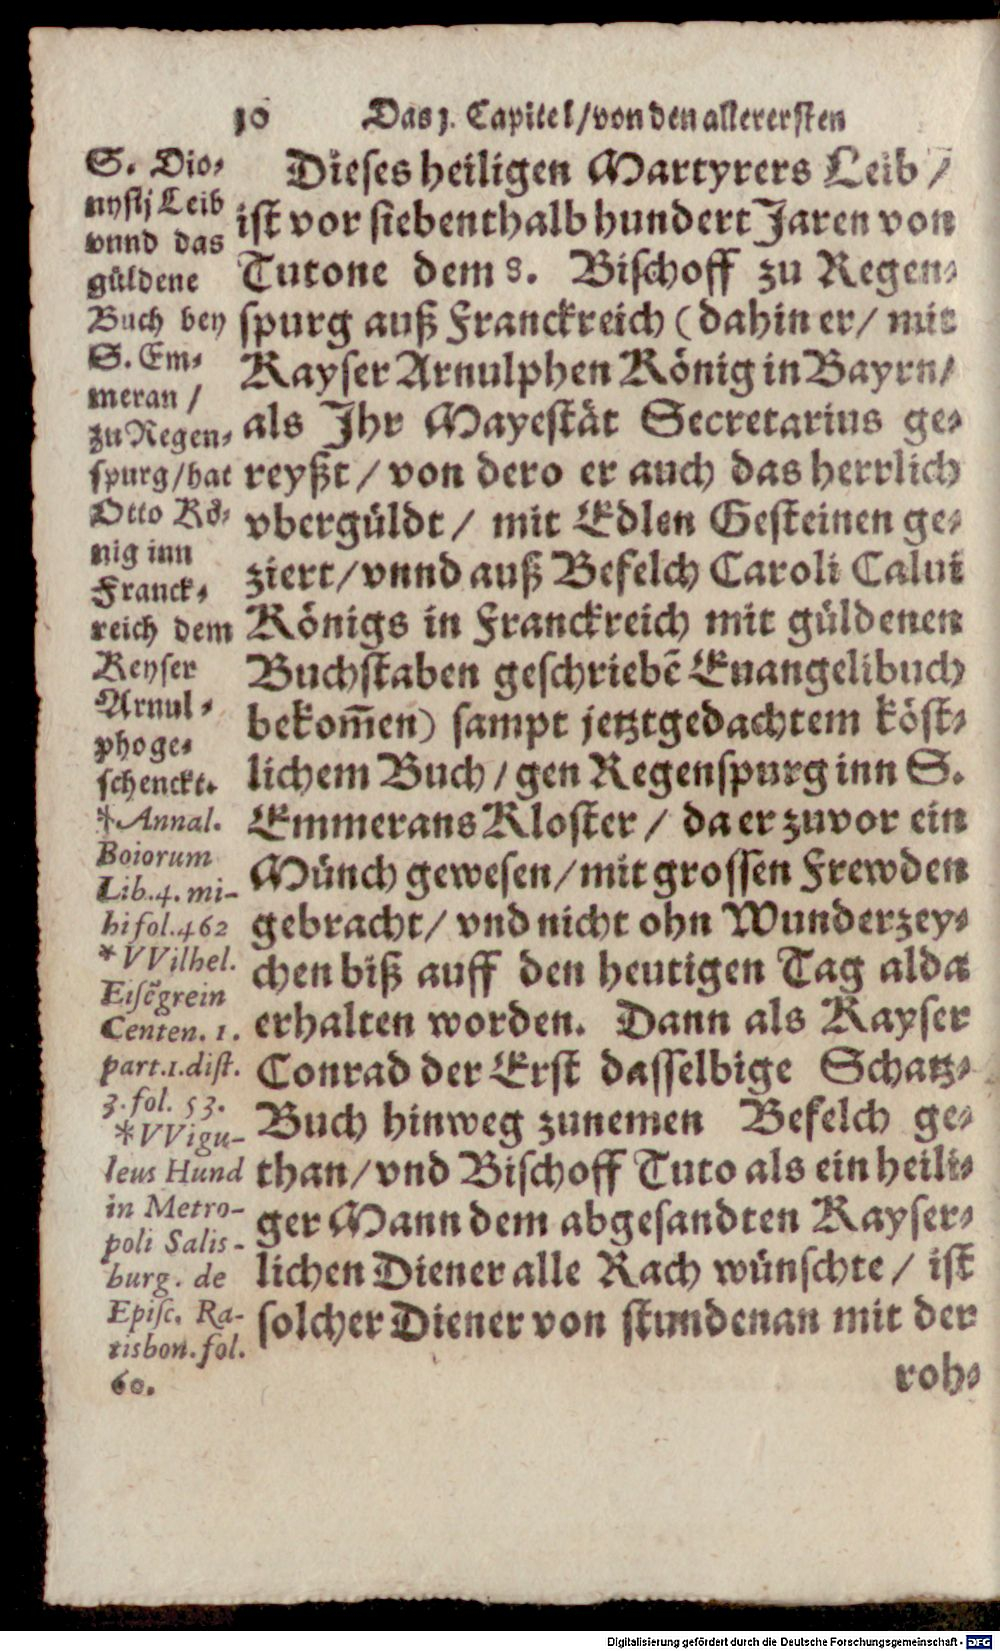 10 Das 1. Capitel / von den allerersten
S. Dio-
nysij Leib
vnnd das
güldene
Buch bey
S. Em-
meran /
zu Regen-
spurg / hat
Otto Kö-
nig inn
Franck-
reich dem
Keyser
Arnul-
pho ge-
schenckt.
* Annal.
Boiorum
Lib. 4. mi-
hi fol. 462
* VVilhel.
Eisēgrein
Centen. 1.
part. 1. dist.
3. fol. 53.
* VVigu-
leus Hund
in Metro-
poli Salis-
burg. de
Episc. Ra-
tisbon. fol.
60.
Dieses heiligen Martyrers Leib /
ist vor siebenthalb hundert Jaren von
Tutone dem 8. Bischoff zu Regen-
spurg auß Franckreich (dahin er / mit
Kayser Arnulphen König in Bayrn /
als Ihr Mayestät Secretarius ge-
reyßt / von dero er auch das herrlich
vbergüldt / mit Edlen Gesteinen ge-
ziert / vnnd auß Befelch Caroli Calui
Königs in Franckreich mit güldenen
Buchstaben geschriebē Euangelibuch
bekom̄en) sampt jetztgedachtem köst-
lichem Buch / gen Regenspurg inn S.
Emmerans Kloster / da er zuvor ein
Münch gewesen / mit grossen Frewden
gebracht / vnd nicht ohn Wunderzey-
chen biß auff den heutigen Tag alda
erhalten worden. Dann als Kayser
Conrad der Erst dasselbige Schatz-
Buch hinweg zunemen Befelch ge-
than / vnd Bischoff Tuto als ein heili-
ger Mann dem abgesandten Kayser-
lichen Diener alle Rach wünschte / ist
solcher Diener von stundenan mit der
roh-
Digitalisierung gefördert durch die Deutsche Forschungsgemeinschaft - DFG